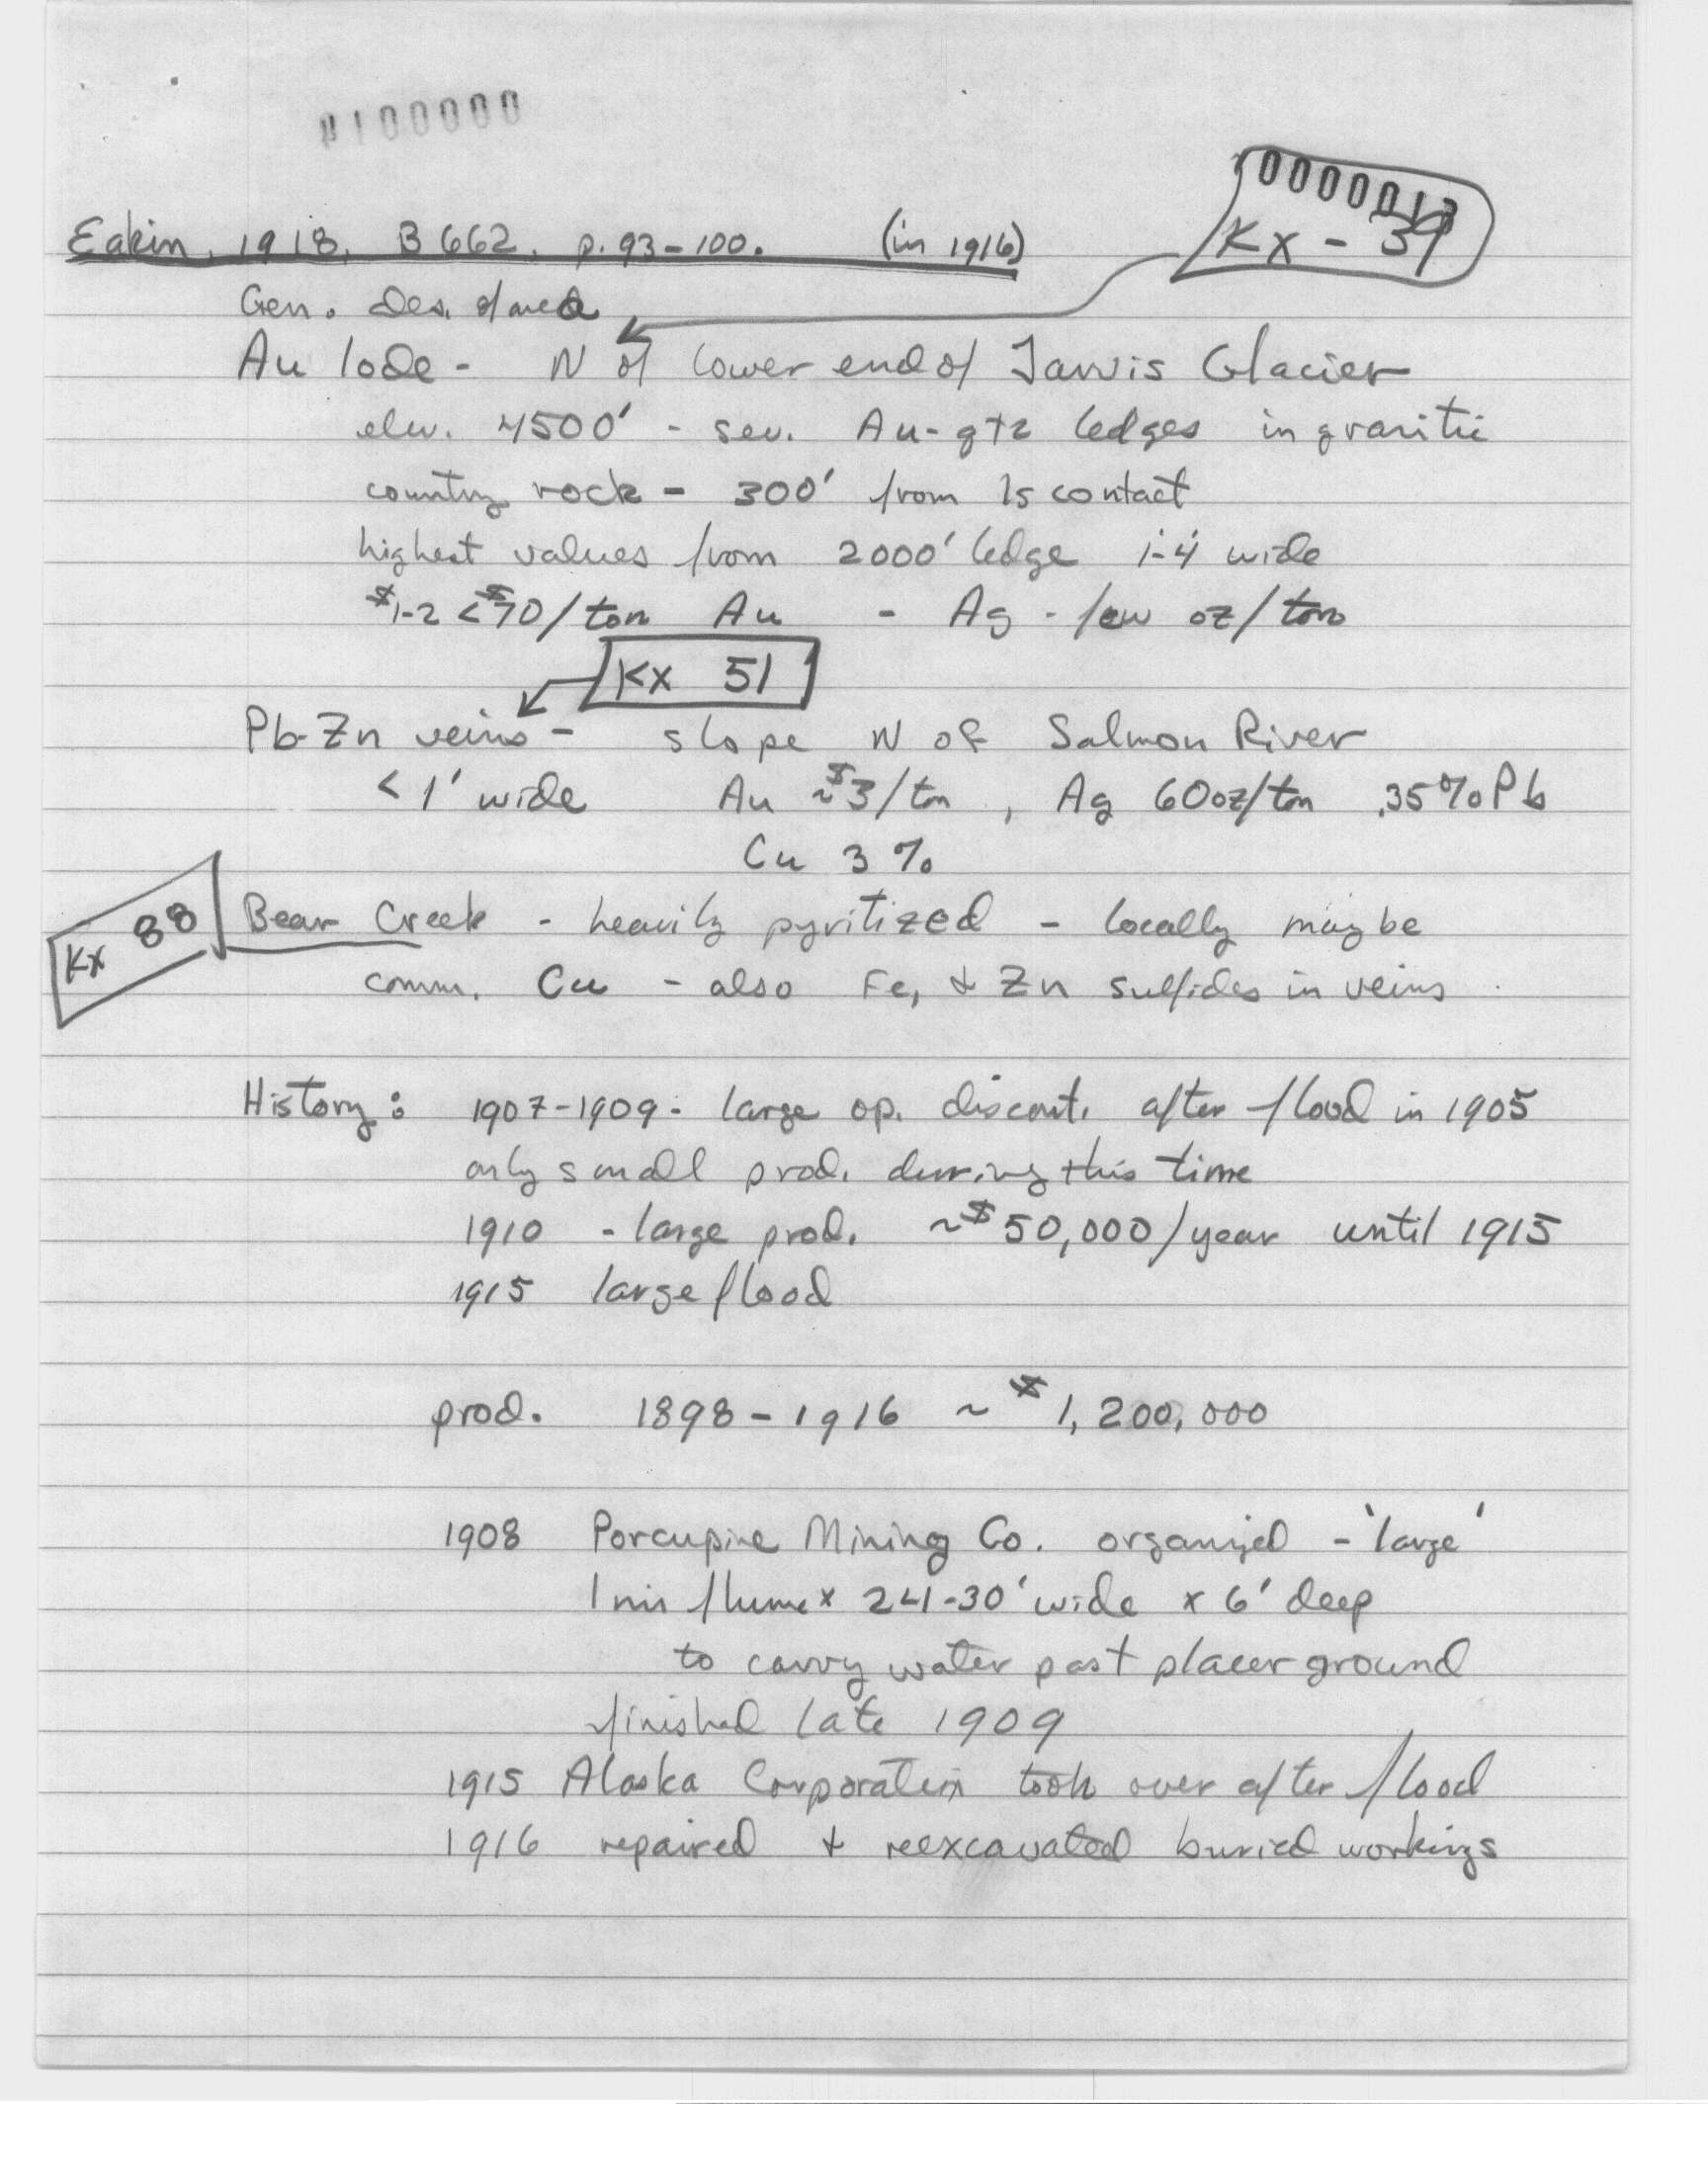 0100000
0000013
Kx - 39
Eakin, 1918, B 662, p. 93-100. (in 1916)
Gen. Des. of area
Au lode - N of lower end of Jarvis Glacier
elev. 4500' - sev. Au-qtz ledges in granitic
country rock - 300' from ls contact
highest values from 2000' ledge 1'-4' wide
$1-2 < $70/ton Au - Ag - few oz/ton
Kx 51
Pb-Zn veins - slope N of Salmon River
< 1' wide Au ~$3/ton, Ag 60oz/ton .35% Pb
Cu 3%
Kx 88
Bear Creek - heavily pyritized - locally may be
comm. Cu - also Fe, & Zn sulfides in veins
History: 1907-1909 - large op. discont. after flood in 1905
only small prod. during this time
1910 - large prod. ~$50,000/year until 1915
1915 large flood
prod. 1898-1916 ~ $1,200,000
1908 Porcupine Mining Co. organized - 'large'
1 mi flume x 24-30' wide x 6' deep
to carry water past placer ground
finished late 1909
1915 Alaska Corporation took over after flood
1916 repaired & reexcavated buried workings